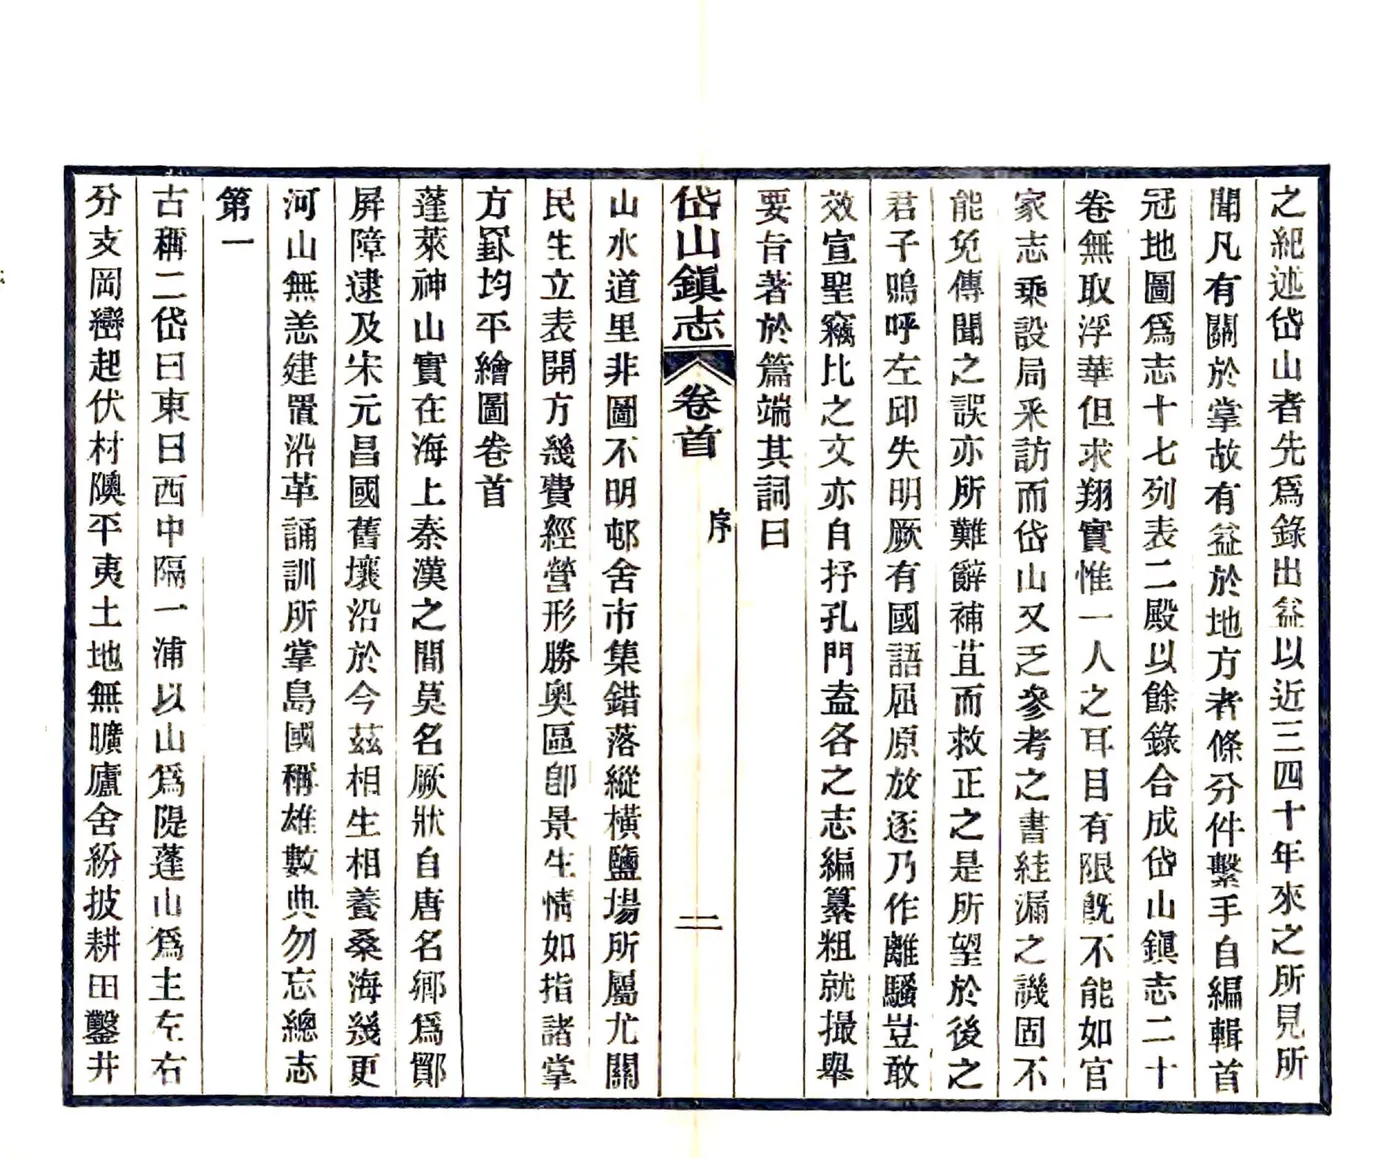 之紀述岱山者先爲錄出益以近三四十年來之所見所
聞凡有關於掌故有益於地方者條分件繫手自編輯首
冠地圖爲志十七列表二殿以餘錄合成岱山鎭志二十
卷無取浮華但求翔實惟一人之耳目有限旣不能如官
家志乘設局釆訪而岱山又乏參考之書絓漏之譏固不
能免傳聞之誤亦所難辭補苴而救正之是所望於後之
君子嗚呼左邱失明厥有國語屈原放逐乃作離騷豈敢
效宣聖竊比之文亦自抒孔門盍各之志編纂粗就撮舉
要旨著於篇端其詞曰
岱山鎭志 卷首 序 二
山水道里非圖不明邨舍市集錯落縱橫鹽場所屬尤關
民生立表開方幾費經營形勝奧區卽景生情如指諸掌
方罫均平繪圖卷首
蓬萊神山實在海上秦漢之間莫名厥狀自唐名鄉爲鄮
屛障逮及宋元昌國舊壤沿於今茲相生相養桑海幾更
河山無恙建置沿革誦訓所掌島國稱雄數典勿忘總志
第一
古稱二岱曰東曰西中隔一浦以山爲隄蓬山爲主左右
分支岡巒起伏村隩平夷土地無曠廬舍紛披耕田鑿井